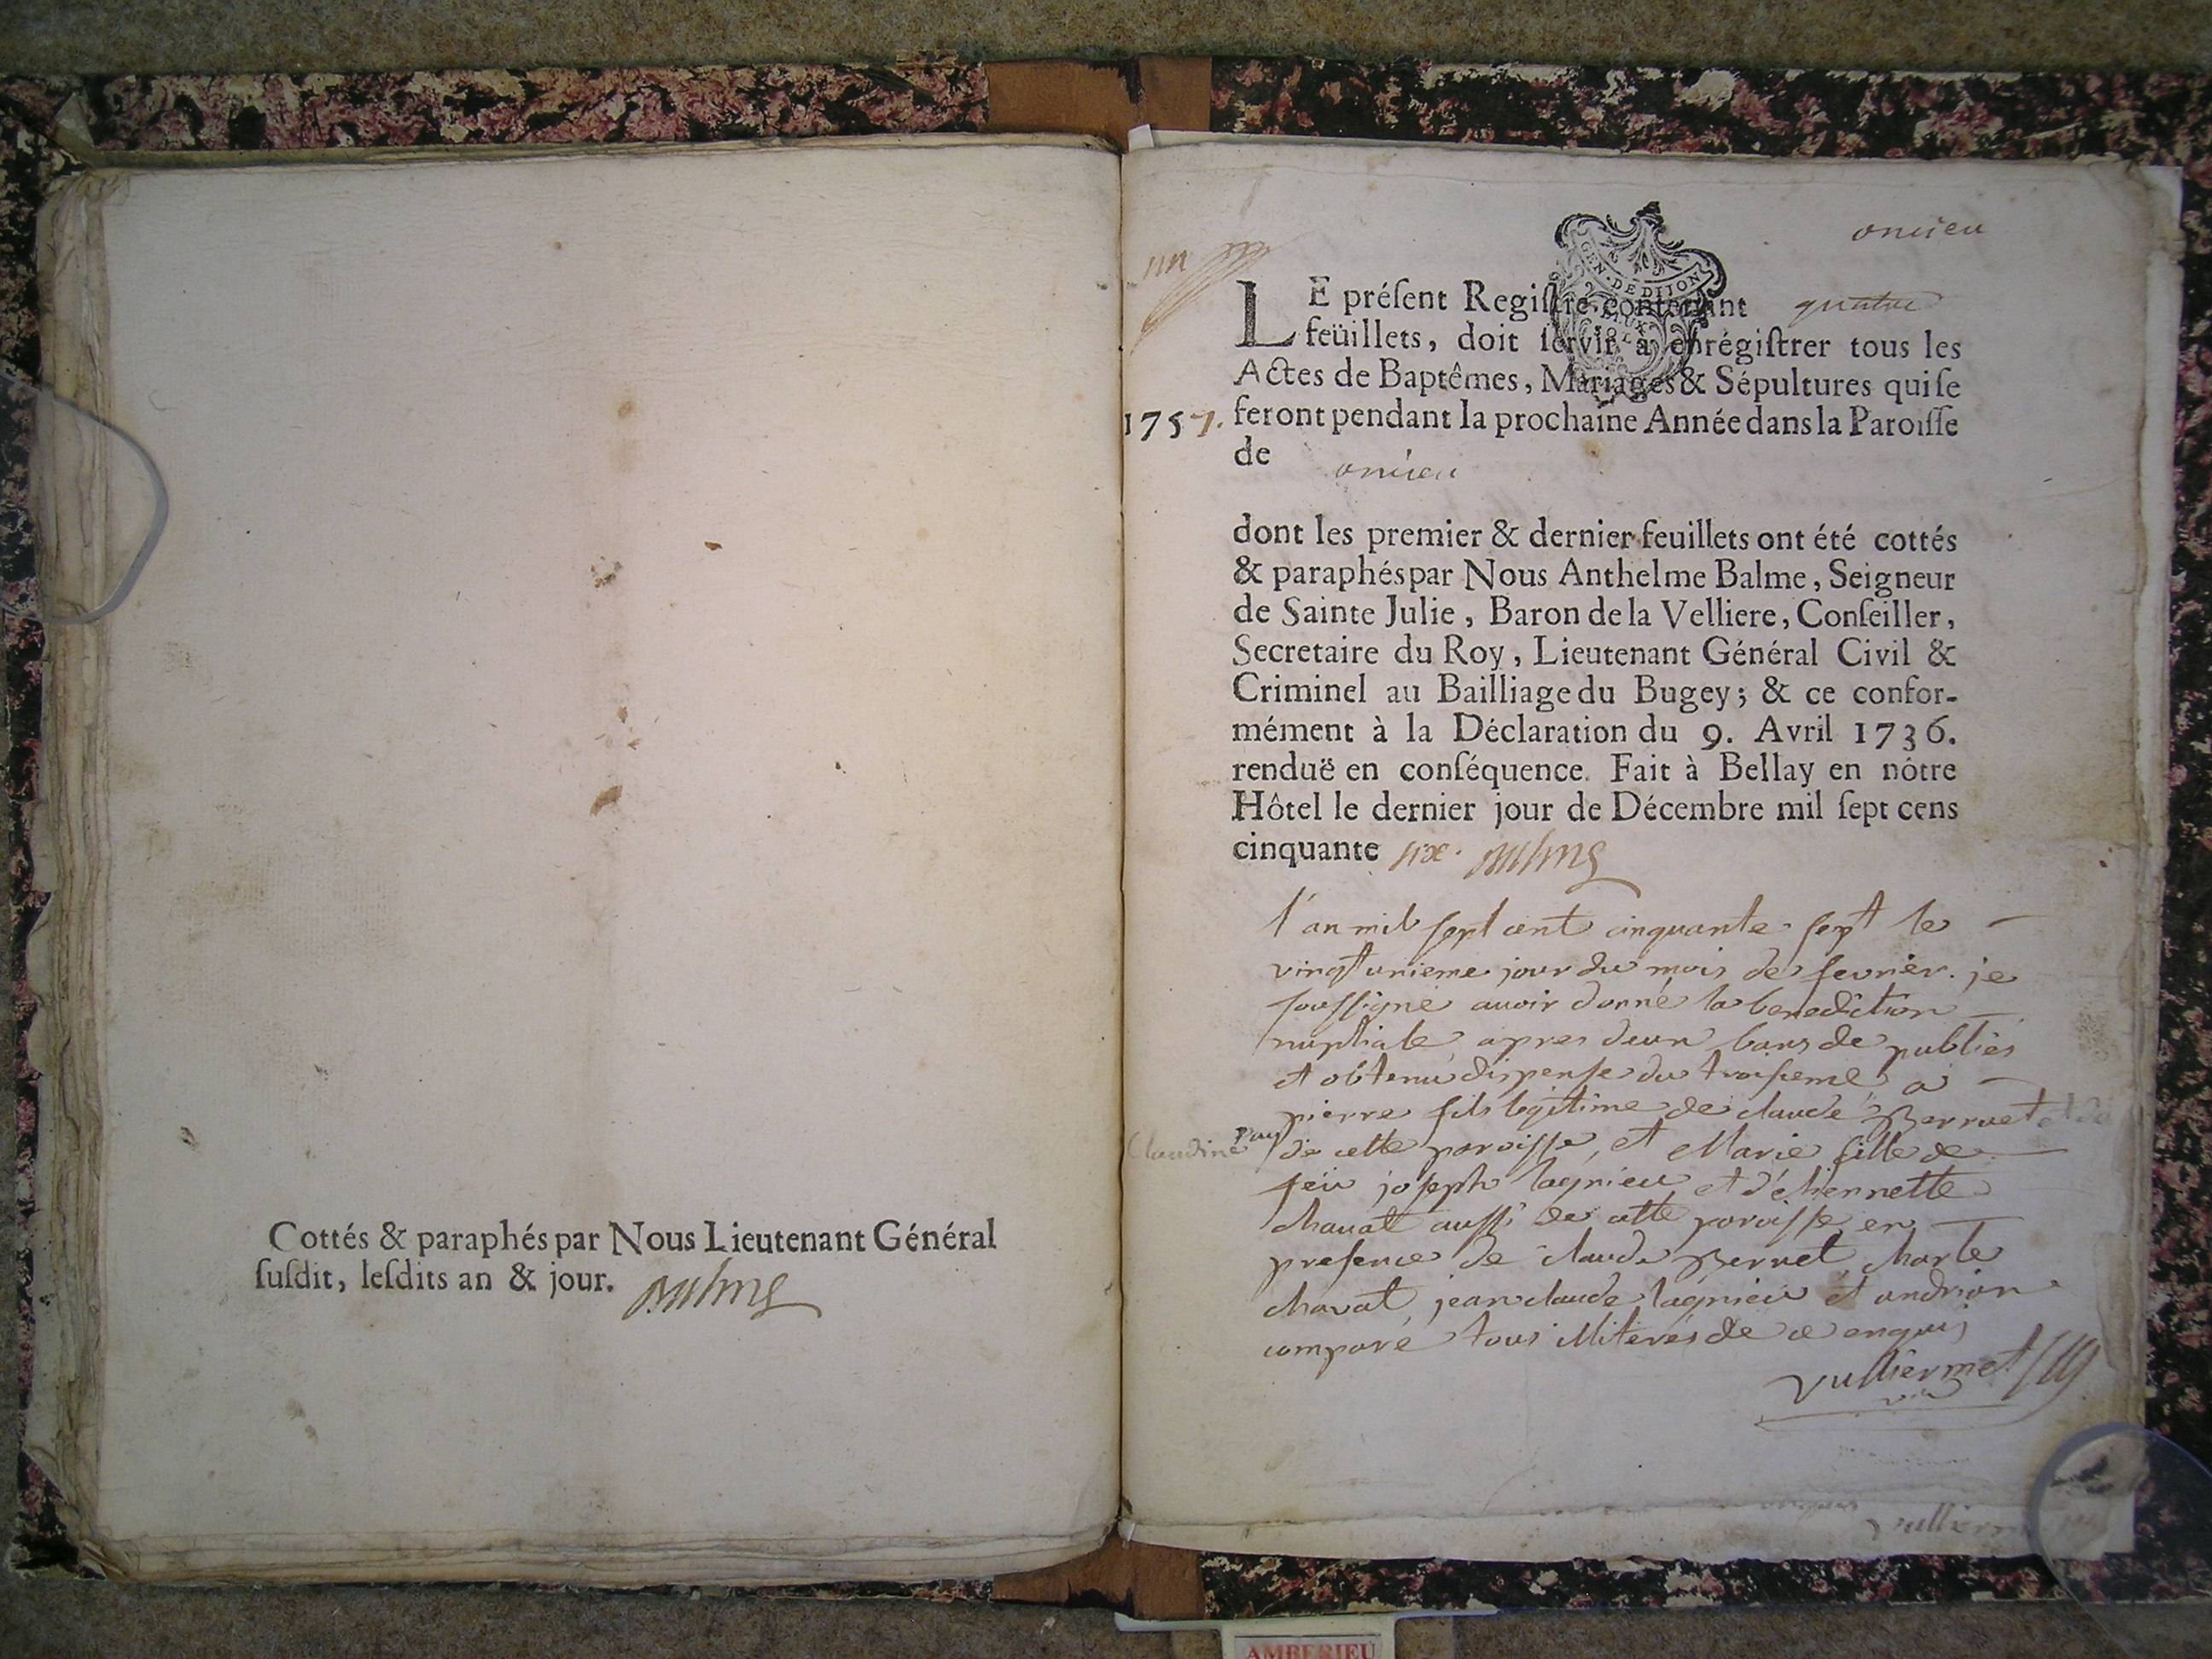 Cottés & paraphés par Nous Lieutenant Général
ſuſdit, leſdits an & jour. Balme
un
oncieu
GEN. DE DIJON
LE préſent Regiſtre contenant quatre
feüillets, doit ſervir à enrégiſtrer tous les
Actes de Baptêmes, Mariages & Sépultures qui ſe
1757. feront pendant la prochaine Année dans la Paroiſſe
de oncieu
dont les premier & dernier feuillets ont été cottés
& paraphés par Nous Anthelme Balme, Seigneur
de Sainte Julie, Baron de la Velliere, Conſeiller,
Secretaire du Roy, Lieutenant Général Civil &
Criminel au Bailliage du Bugey; & ce confor-
mément à la Déclaration du 9. Avril 1736.
renduë en conſéquence. Fait à Bellay en nôtre
Hôtel le dernier jour de Décembre mil ſept cens
cinquante six. Balme
l'an mil sept cent cinquante sept le
vingt unieme jour du mois de fevrier. je
soussigné avoir donné la benediction
nuptiale apres deux bans de publiés
et obtenu dispense du troisieme a
pierre fils legitime de claude Berruet et de
Claudine
de cette paroisse, et Marie fille de
feu joseph lagnieu et d'etiennette
chavat aussi de cette paroisse en
presence de claude Berruet, charle
chavat, jean claude lagnieu et andrian
comparé tous illiterés de ce enquis
Vulliermet
AMBERIEU